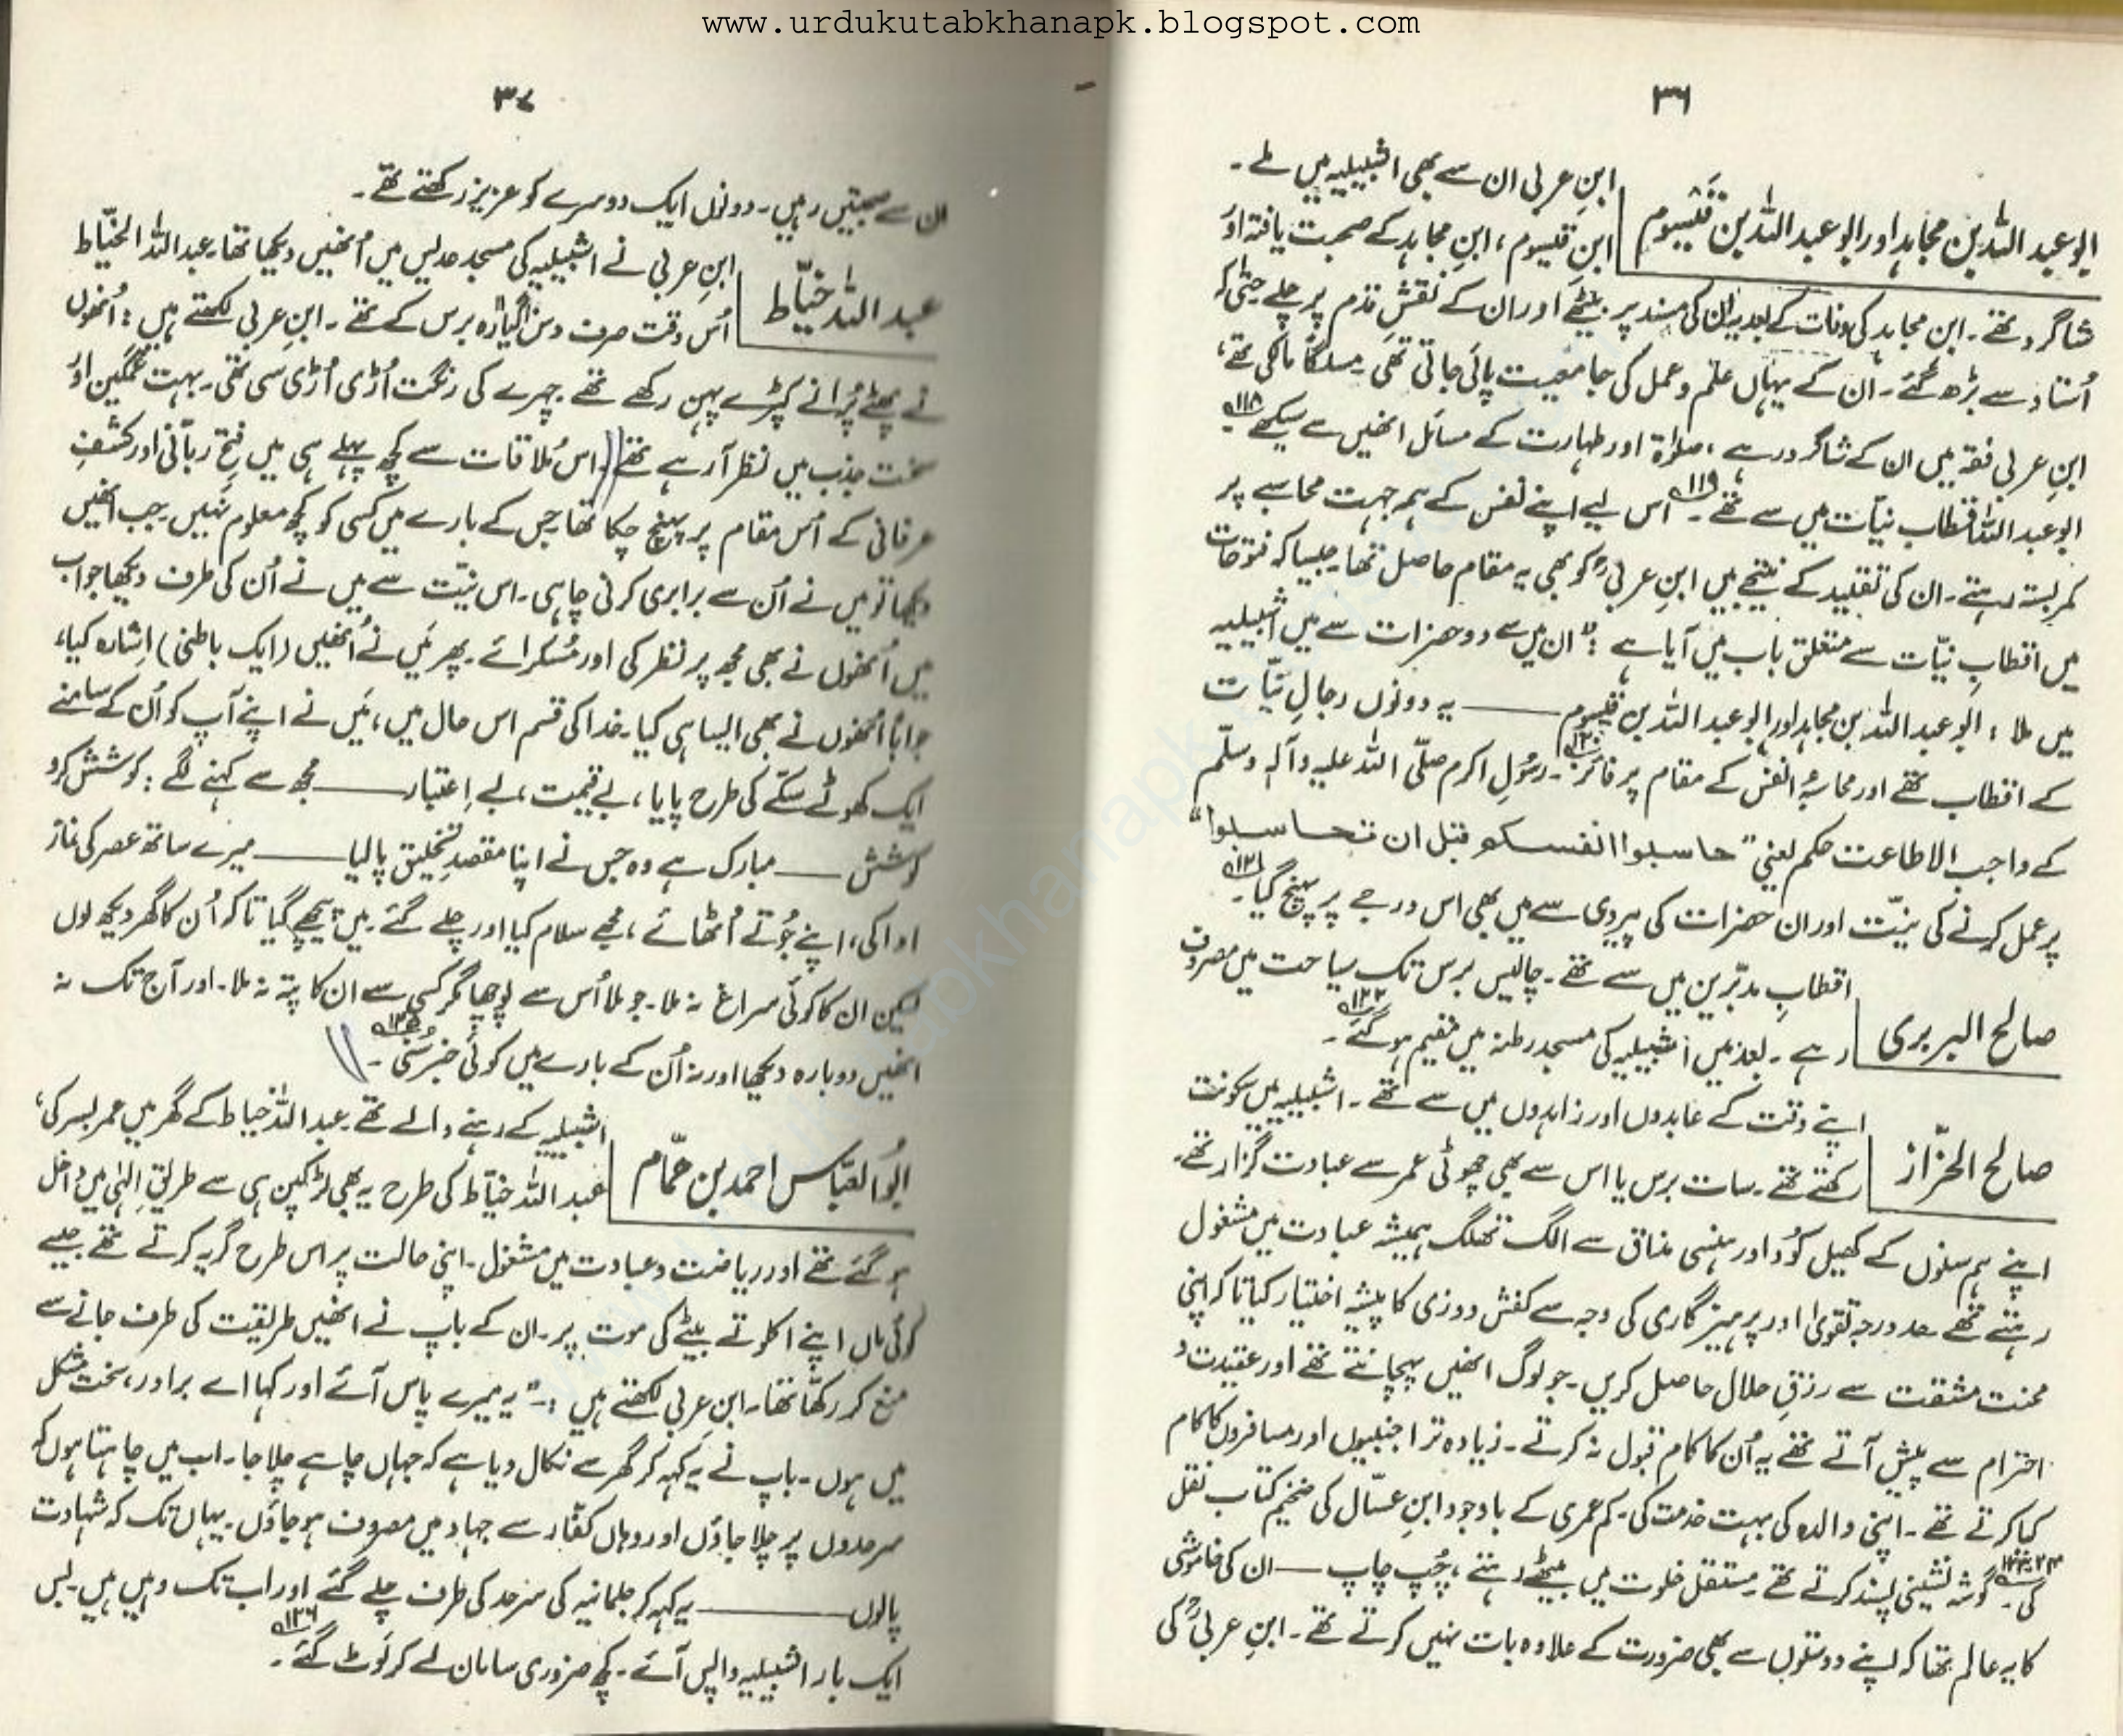 www.urdukutabkhanapk.blogspot.com
۳۶
ابو عبد اللہ بن مجاہد اور ابو عبد اللہ بن قَسُّوم
ابنِ عربی ان سے بھی اشبیلیہ میں ملے۔
ابنِ قیسوم، ابنِ مجاہد کے صحبت یافتہ اور
شاگرد تھے۔ ابن مجاہد کی وفات کے بعد یہ ان کی مسند پر بیٹھے اور ان کے نقشِ قدم پر چلے حتّٰی کہ
اُستاد سے بڑھ گئے۔ ان کے یہاں علم و عمل کی جامعیت پائی جاتی تھی۔ مسلکاً مالکی تھے،
ابنِ عربی فقہ میں ان کے شاگرد رہے، صلوٰۃ اور طہارت کے مسائل انھیں سے سیکھے ۱۱۸۔
ابو عبد اللہ اقطاب نیّات میں سے تھے ۱۱۹۔ اس لیے اپنے نفس کے ہمہ جہت محاسبے پر
کمر بستہ رہتے۔ ان کی تقلید کے نتیجے میں ابنِ عربیؒ کو بھی یہ مقام حاصل تھا۔ جیسا کہ فتوحات
میں اقطابِ نیّات سے متعلق باب میں آیا ہے: "ان میں سے دو حضرات سے میں اشبیلیہ
میں ملا: ابو عبد اللہ بن مجاہد اور ابو عبد اللہ بن قیسوم —— یہ دونوں رجالِ نیّات
کے اقطاب تھے اور محاسبۂ النفس کے مقام پر فائز ۱۲۰۔ رسُولِ اکرم صلّی اللہ علیہ وآلہٖ وسلّم
کے واجب الاطاعت حکم یعنی "حاسبوا انفسکو قبل ان تحاسبوا"
پر عمل کرنے کی نیّت اور ان حضرات کی پیروی سے میں بھی اس درجے پر پہنچ گیا ۱۲۱۔
صالح البربری
اقطابِ مدبّرین میں سے تھے۔ چالیس برس تک سیاحت میں مصروف
رہے۔ بعد میں اشبیلیہ کی مسجد رطنہ میں مقیم ہو گئے ۱۲۲۔
صالح الخرّاز
اپنے وقت کے عابدوں اور زاہدوں میں سے تھے۔ اشبیلیہ میں سکونت
رکھتے تھے۔ سات برس یا اس سے بھی چھوٹی عمر سے عبادت گزار تھے۔
اپنے ہم سنوں کے کھیل کُود اور ہنسی مذاق سے الگ تھلگ ہمیشہ عبادت میں مشغول
رہتے تھے۔ حد درجہ تقویٰ اور پرہیزگاری کی وجہ سے کفش دوزی کا پیشہ اختیار کیا تا کہ اپنی
محنت مشقت سے رزقِ حلال حاصل کریں۔ جو لوگ انھیں پہچانتے تھے اور عقیدت و
احترام سے پیش آتے تھے یہ اُن کا کام قبول نہ کرتے۔ زیادہ تر اجنبیوں اور مسافروں کا کام
کیا کرتے تھے۔ اپنی والدہ کی بہت خدمت کی۔ کم عمری کے باوجود ابنِ عسّال کی ضخیم کتاب نقل
کی۔ گوشہ نشینی پسند کرتے تھے۔ مستقل خلوت میں بیٹھے رہتے، چُپ چاپ — ان کی خاموشی
کا یہ عالم تھا کہ اپنے دوستوں سے بھی ضرورت کے علاوہ بات نہیں کرتے تھے۔ ابنِ عربیؒ کی
۳۷
ان سے صحبتیں رہیں۔ دونوں ایک دوسرے کو عزیز رکھتے تھے۔
عبد اللہ خیّاط
ابنِ عربی نے اشبیلیہ کی مسجد عدیس میں اُنھیں دیکھا تھا۔ عبد اللہ الخیّاط
اُس وقت صرف دس گیارہ برس کے تھے۔ ابنِ عربی لکھتے ہیں: اُنھوں
نے پھٹے پُرانے کپڑے پہن رکھے تھے۔ چہرے کی رنگت اُڑی اُڑی سی تھی۔ بہت غمگین اور
سخت جذب میں نظر آرہے تھے۔ اس مُلاقات سے کچھ پہلے ہی میں فتحِ ربّانی اور کشفِ
عرفانی کے اُس مقام پر پہنچ چکا تھا جس کے بارے میں کسی کو کچھ معلوم نہیں۔ جب اُنھیں
دیکھا تو میں نے اُن سے برابری کرنی چاہی۔ اس نیّت سے میں نے اُن کی طرف دیکھا جواب
میں اُنھوں نے بھی مجھ پر نظر کی اور مُسکرائے۔ پھر مَیں نے اُنھیں (ایک باطنی) اِشارہ کیا،
جواباً اُنھوں نے بھی ایسا ہی کیا۔ خدا کی قسم اس حال میں، مَیں نے اپنے آپ کو اُن کے سامنے
ایک کھوٹے سِکّے کی طرح پایا، بے قیمت، بے اِعتبار —— مجھ سے کہنے لگے: کوشش کرو
کوشش —— مبارک ہے وہ جس نے اپنا مقصدِ تخلیق پالیا —— میرے ساتھ عصر کی نماز
ادا کی، اپنے جُوتے اُٹھائے، مجھے سلام کیا اور چلے گئے۔ میں پیچھے گیا تا کہ اُن کا گھر دیکھ لوں
لیکن ان کا کوئی سراغ نہ ملا۔ جو ملا اُس سے پوچھا مگر کسی سے ان کا پتہ نہ ملا۔ اور آج تک نہ
انھیں دوبارہ دیکھا اور نہ اُن کے بارے میں کوئی خبر سُنی ۱۲۵۔
ابُو العبّاس احمد بن ہمّام
اشبیلیہ کے رہنے والے تھے۔ عبد اللہ خیاط کے گھر میں عمر بسر کی،
عبد اللہ خیّاط کی طرح یہ بھی لڑکپن ہی سے طریقِ الٰہی میں داخل
ہو گئے تھے اور ریاضت و عبادت میں مشغول۔ اپنی حالت پر اس طرح گریہ کرتے تھے جیسے
کوئی ماں اپنے اکلوتے بیٹے کی موت پر۔ ان کے باپ نے انھیں طریقیت کی طرف جانے سے
منع کر رکھّا تھا۔ ابنِ عربی لکھتے ہیں :۔ "یہ میرے پاس آئے اور کہا اے برادر، سخت مشکل
میں ہوں۔ باپ نے یہ کہہ کر گھر سے نکال دیا ہے کہ جہاں چاہے چلا جا۔ اب میں چاہتا ہوں کہ
سرحدوں پر چلا جاؤں اور وہاں کفّار سے جہاد میں مصروف ہو جاؤں۔ یہاں تک کہ شہادت
پالوں —— یہ کہہ کر جلمانیہ کی سرحد کی طرف چلے گئے اور اب تک وہیں ہیں۔ بس
ایک بار اشبیلیہ واپس آئے۔ کچھ ضروری سامان لے کر لَوٹ گئے ۱۲۶۔